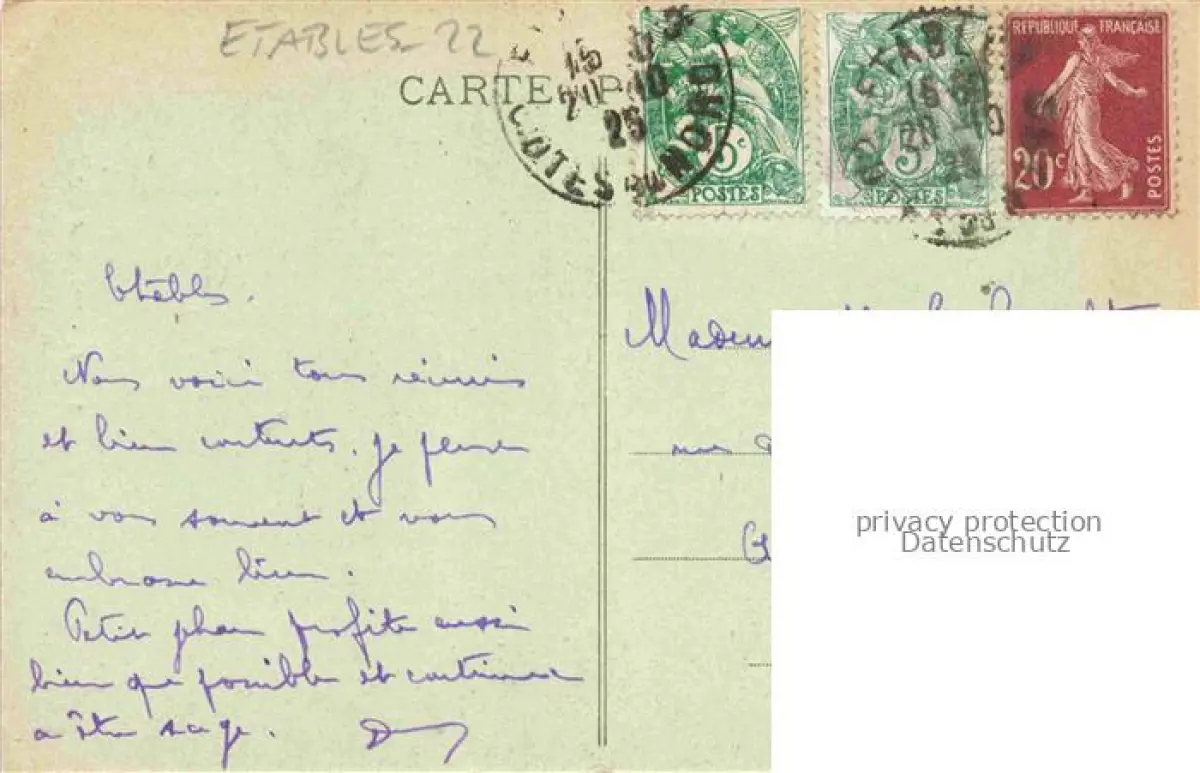 ETABLES-22
CARTE P
15
20 10
25
COTES DU NORD
5c
POSTES
ETABLES
15
20 10
25
5
POSTES
RÉPUBLIQUE FRANÇAISE
20c
POSTES
Etables.
Nous voici tous réunis
et bien contents. Je pense
à vous souvent et vous
embrasse bien.
Petit profite aussi
bien que possible et continue
a être sage.
Madem
rue d
privacy protection
Datenschutz